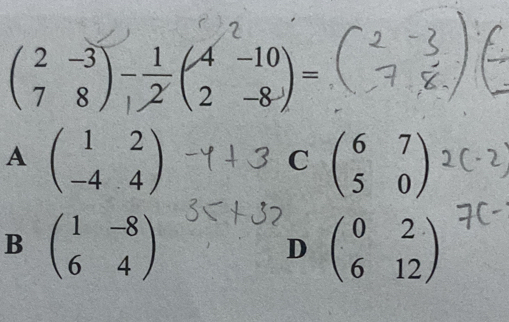 (2 -3; 7 8) - 1/2 (4 -10; 2 -8) = (2 -3; 7 8)
2
1
A (1 2; -4 4) -4+3 C (6 7; 5 0) 2(-2)
B (1 -8; 6 4) 35+32 D (0 2; 6 12) 7(-